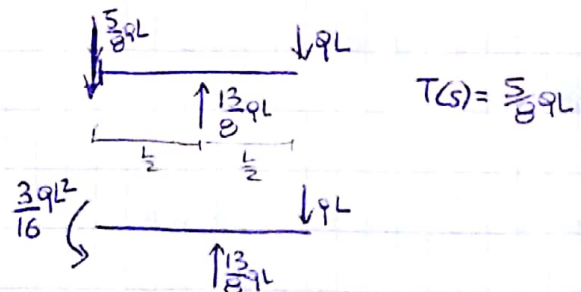 5/8 qL
qL
13/8 qL
T(s) = 5/8 qL
L/2 L/2
3qL²/16
qL
13/8 qL